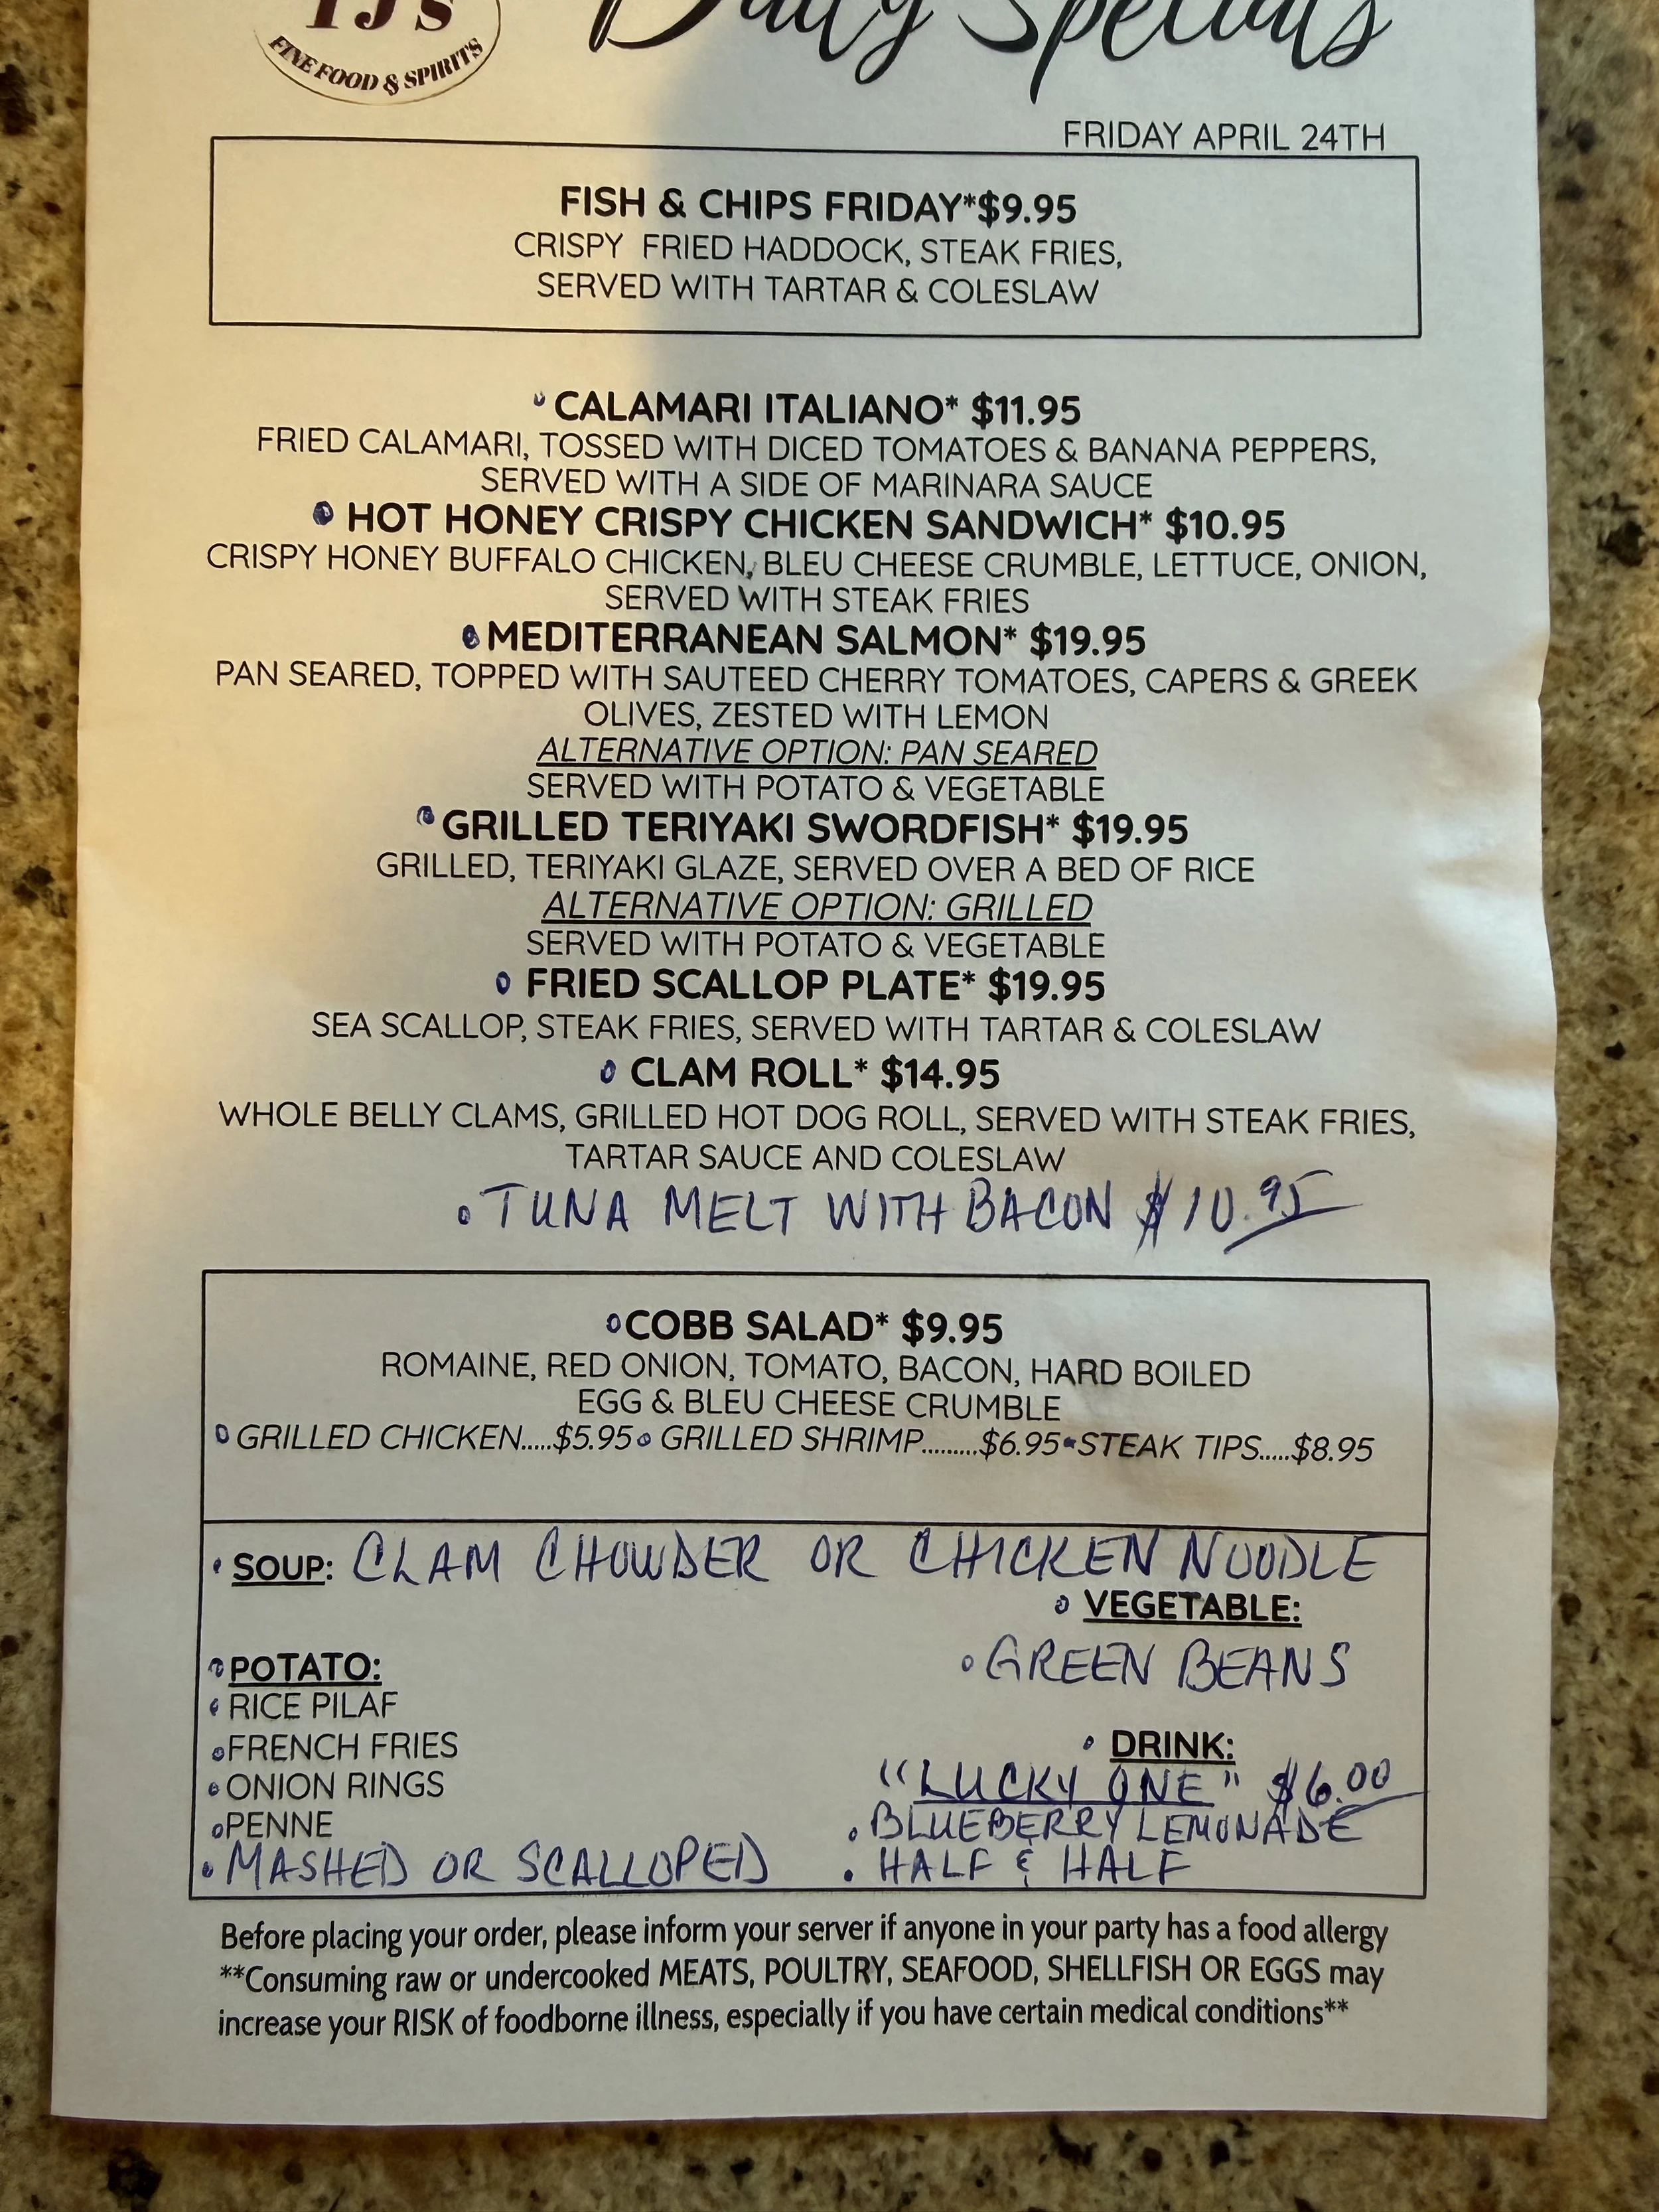 TJ's
FINE FOOD & SPIRITS
Daily Specials
FRIDAY APRIL 24TH
FISH & CHIPS FRIDAY*$9.95
CRISPY FRIED HADDOCK, STEAK FRIES,
SERVED WITH TARTAR & COLESLAW
CALAMARI ITALIANO* $11.95
FRIED CALAMARI, TOSSED WITH DICED TOMATOES & BANANA PEPPERS,
SERVED WITH A SIDE OF MARINARA SAUCE
HOT HONEY CRISPY CHICKEN SANDWICH* $10.95
CRISPY HONEY BUFFALO CHICKEN, BLEU CHEESE CRUMBLE, LETTUCE, ONION,
SERVED WITH STEAK FRIES
MEDITERRANEAN SALMON* $19.95
PAN SEARED, TOPPED WITH SAUTEED CHERRY TOMATOES, CAPERS & GREEK
OLIVES, ZESTED WITH LEMON
ALTERNATIVE OPTION: PAN SEARED
SERVED WITH POTATO & VEGETABLE
GRILLED TERIYAKI SWORDFISH* $19.95
GRILLED, TERIYAKI GLAZE, SERVED OVER A BED OF RICE
ALTERNATIVE OPTION: GRILLED
SERVED WITH POTATO & VEGETABLE
FRIED SCALLOP PLATE* $19.95
SEA SCALLOP, STEAK FRIES, SERVED WITH TARTAR & COLESLAW
CLAM ROLL* $14.95
WHOLE BELLY CLAMS, GRILLED HOT DOG ROLL, SERVED WITH STEAK FRIES,
TARTAR SAUCE AND COLESLAW
• TUNA MELT WITH BACON $10.95
COBB SALAD* $9.95
ROMAINE, RED ONION, TOMATO, BACON, HARD BOILED
EGG & BLEU CHEESE CRUMBLE
GRILLED CHICKEN.....$5.95 • GRILLED SHRIMP.........$6.95 • STEAK TIPS.....$8.95
• SOUP: CLAM CHOWDER OR CHICKEN NOODLE
• VEGETABLE:
• GREEN BEANS
• POTATO:
• RICE PILAF
• FRENCH FRIES
• ONION RINGS
• PENNE
• MASHED OR SCALLOPED
• DRINK:
"LUCKY ONE" $6.00
• BLUEBERRY LEMONADE
• HALF & HALF
Before placing your order, please inform your server if anyone in your party has a food allergy
**Consuming raw or undercooked MEATS, POULTRY, SEAFOOD, SHELLFISH OR EGGS may
increase your RISK of foodborne illness, especially if you have certain medical conditions**